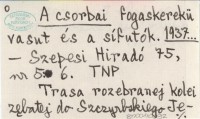 A csorbai fogaskerekü
vasut és a sífutók. 1937...
- Szepesi Hiradó 75,
nr 5 6. TNP
Trasa rozebranej kolei
zębatej do Szczyrbskiego Je-